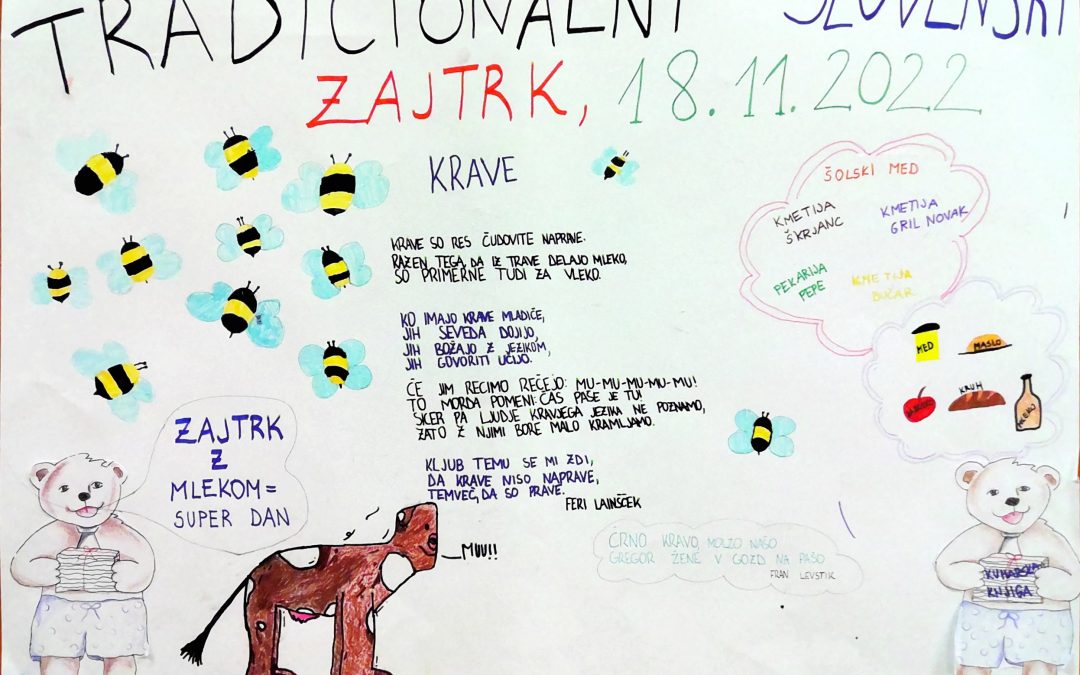 TRADICIONALNI SLOVENSKI
ZAJTRK, 18.11.2022
KRAVE
KRAVE SO RES ČUDOVITE NAPRAVE.
RAZEN TEGA, DA IZ TRAVE DELAJO MLEKO,
SO PRIMERNE TUDI ZA VLEKO.
KO IMAJO KRAVE MLADIČE,
JIH SEVEDA DOJIJO,
JIH BOŽAJO Z JEZIKOM,
JIH GOVORITI UČIJO.
ČE JIM RECIMO REČEJO: MU-MU-MU-MU-MU!
TO MORDA POMENI: ČAS PAŠE JE TU!
SKER PA LJUDJE KRAVJEGA JEZIKA NE POZNAMO,
ZATO Z NJIMI BORE MALO KRAMLJAMO.
KLJUB TEMU SE MI ZDI,
DA KRAVE NISO NAPRAVE,
TEMVEČ, DA SO PRAVE.
FERI LAINŠČEK
ŠOLSKI MED
KMETIJA
ŠKRJANC
KMETIJA
GRIL NOVAK
PEKARIJA
PEPE
KMETIJA
BUČAR
MED
MASLO
KRUH
MLEKO
ZAJTRK
Z
MLEKOM=
SUPER DAN
MUU!!
ČRNO KRAVO, MOLZO NAŠO
GREGOR ŽENE V GOZD NA PAŠO
FRAN LEVSTIK
KUHARSKA
KNJIGA